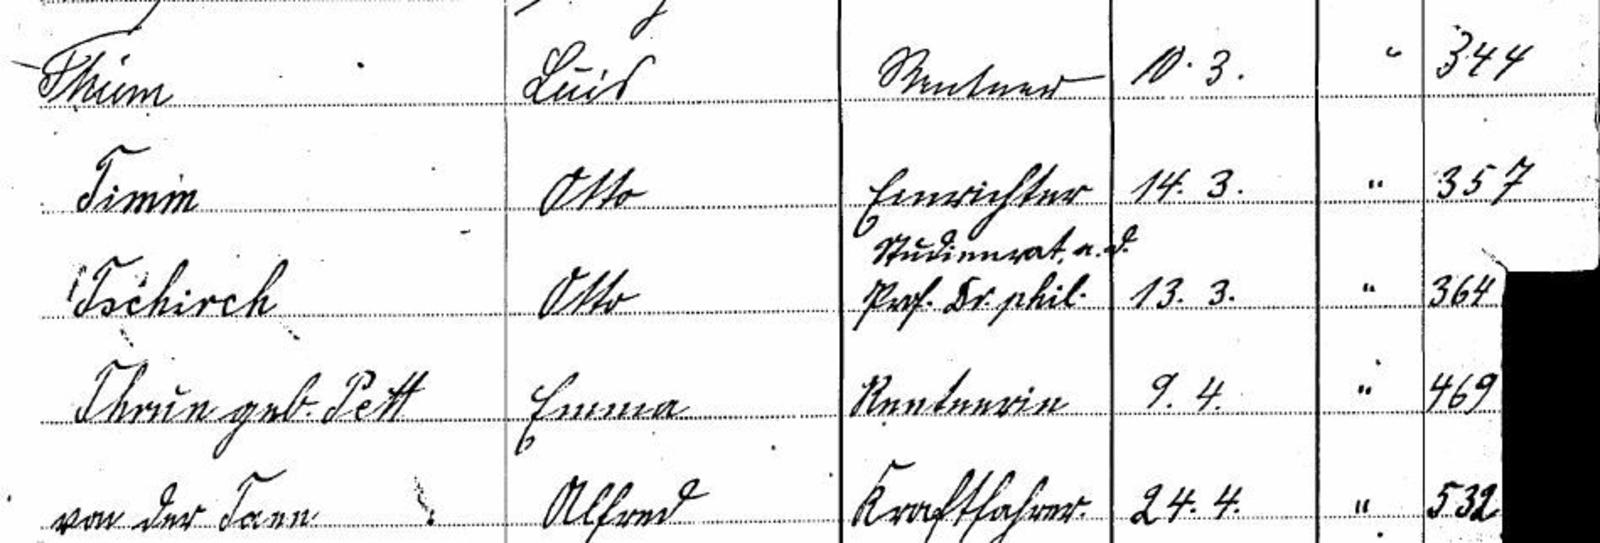 Thüm Luis Rentner 10. 3. " 344
Timm Otto Einrichter 14. 3. " 357
Studienrat, a. d.
Tschirch Otto Prof. Dr. phil. 13. 3. " 364
Thrun geb. Pett Emma Rentnerin 9. 4. " 469
von der Tann Alfred Kraftfahrer 24. 4. " 532